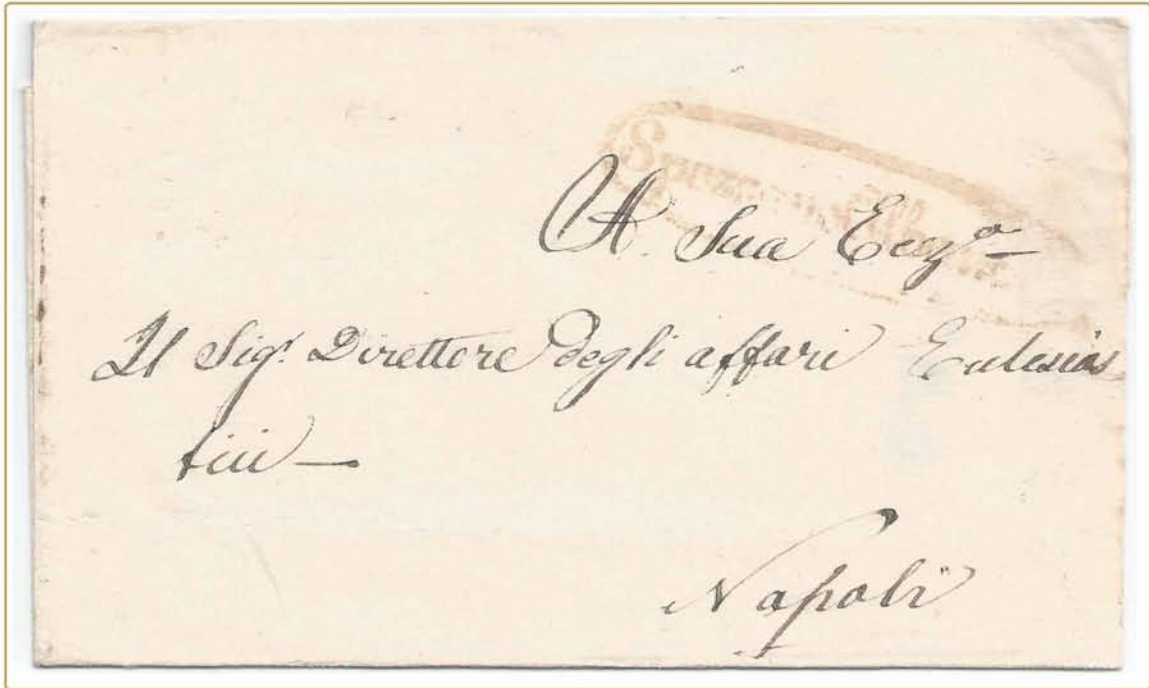 A. Sua Ecz.a
Il Sig.r Direttore degli affari Eclesias
tici
Napoli